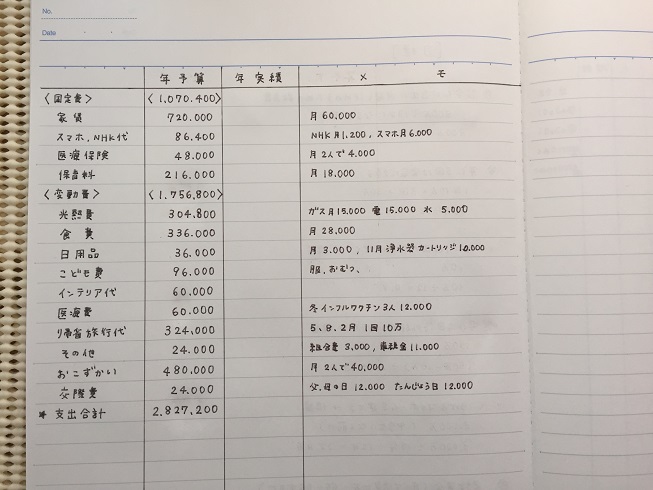 No.
Date
年予算 年実績 メモ
〈固定費〉 〈1,070.400〉
家賃 720.000 月60,000
スマホ,NHK代 86.400 NHK月1,200,スマホ月6,000
医療保険 48.000 月2人で4,000
保育料 216.000 月18.000
〈変動費〉 〈1.756,800〉
光熱費 304.800 ガス月15.000 電15.000 水5.000
食費 336.000 月28,000
日用品 36.000 月3.000,11月浄水器カートリッジ10,000
こども費 96.000 服,おむつ、
インテリア代 60.000
医療費 60.000 冬インフルワクチン3人12.000
帰省旅行代 324,000 5、8、2月 1回10万
その他 24.000 組合費3,000,
おこずかい 480.000 月2人で40.000
交際費 24.000 父、母の日12.000 たんじょう日12.000
* 支出合計 2.827,200